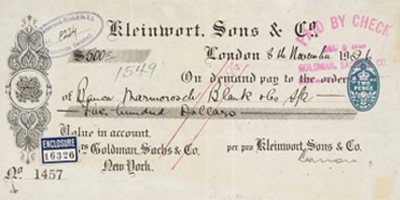 Kleinwort, Sons & Co
PAID BY CHECK
8224
$500
London 8th November 1926
GOLDMAN, SACHS & CO
1549
On demand pay to the order
of Banca Marmorosch Blank & Co S/A
Five hundred Dollars
TWO PENCE
Value in account.
ENCLOSURE
16326
rs Goldman, Sachs & Co.
New York.
per pro Kleinwort, Sons & Co.
No 1457